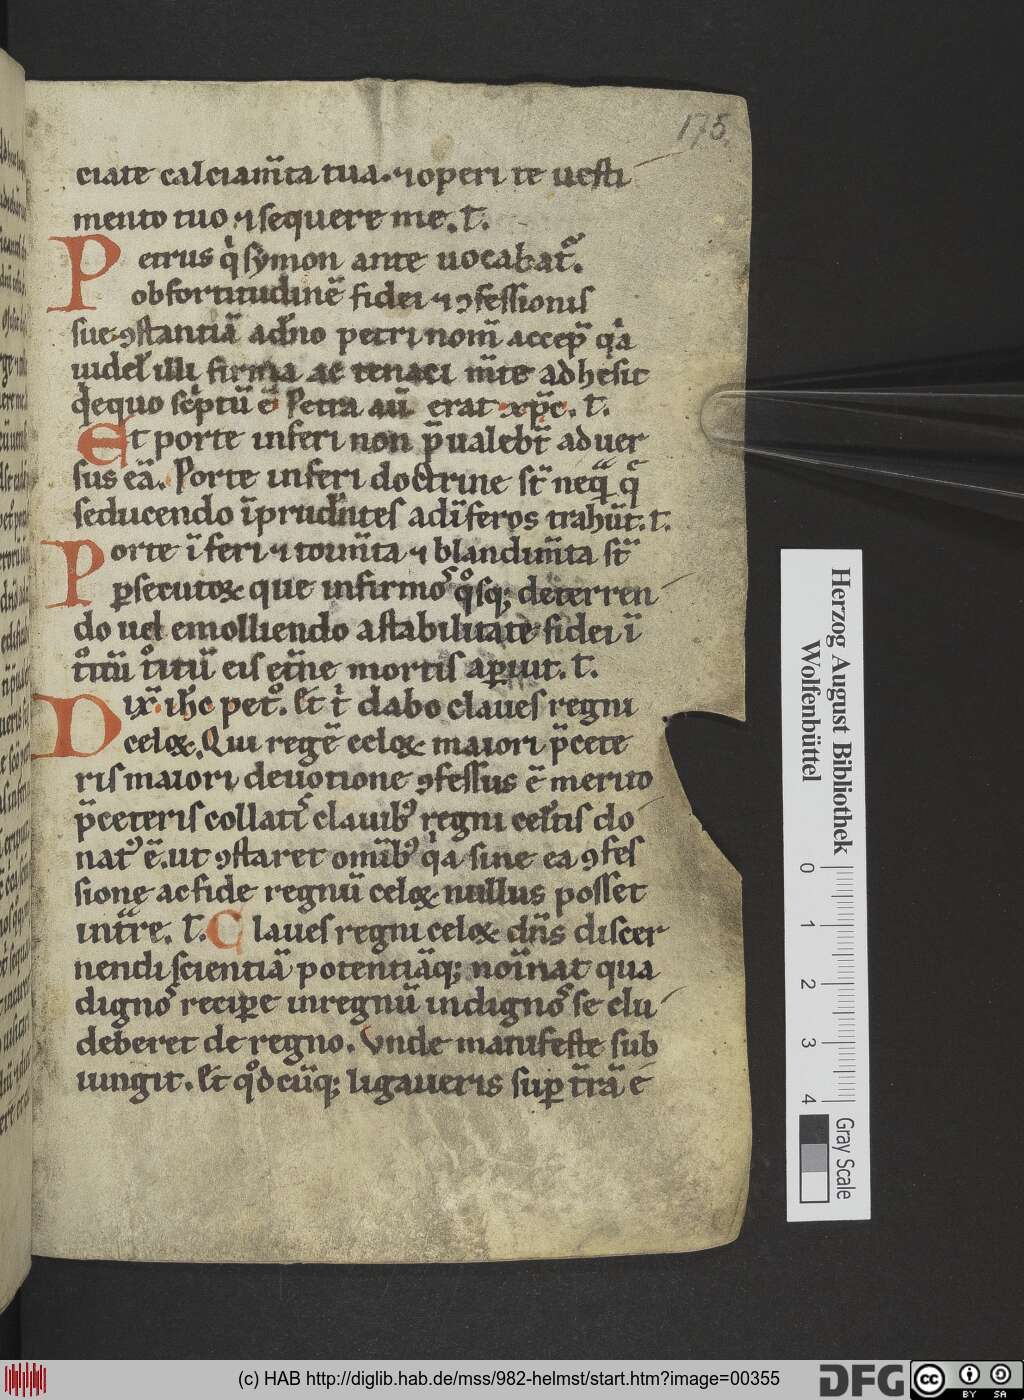 175.
ciate calciam̄ta tua. ⁊ operi te uesti
mento tuo ⁊ sequere me. t̄.
Petrus q̇ symon ante uocabat᷑.
ob fortitudinē fidei ⁊ ꝯfessionis
sue ꝯstantiā ad hͨ petri nom̄ accep̄ qꝛa
uidelꝫ illi firma ac tenaci m̄te adhesit
de quo sc̓ptū ē Petra aū erat xp̄c. t̄.
Et porte inferi non p̄ualebt̄ aduer
sus eā. Porte inferi doctrine st̄ neq̄ q̄
seducendo īprudentes ad īferos trahūt. t̄.
Porte īferi ⁊ tourm̄ta ⁊ blandim̄ta st̄
ꝑsecutoꝝ que infirmos q̊sq; deterren
do uel emolliendo a stabilitate fidei ī
t̊itū t̊itū eis et̄ne mortis aperiut. t̄.
Dix̄ ih̄c pet̊. Et t̓ dabo claues regni
celoꝝ. Qui regē celoꝝ maiori p̄cete
ris maiori deuotione ꝯfessus ē merito
p̄ceteris collatis clauibꝰ regni celestis do
natꝰ ē. ut ꝯstaret omībꝰ q̓a sine ea ꝯfes
sione ac fide regnū celoꝝ nullus posset
int̄re. t̄. Claues regni celoꝝ dn̄s discer
nendi scientiā potentiāq; noīnat qua
dignos recipe in regnū indignos se clu
deberet de regno. Vnde manifeste sub
iungit. Et q̊dcūq; ligaueris sup t̄rā ē
Herzog August Bibliothek
Wolfenbüttel
0 1 2 3 4
Gray Scale
(c) HAB http://diglib.hab.de/mss/982-helmst/start.htm?image=00355
DFG
cc BY SA